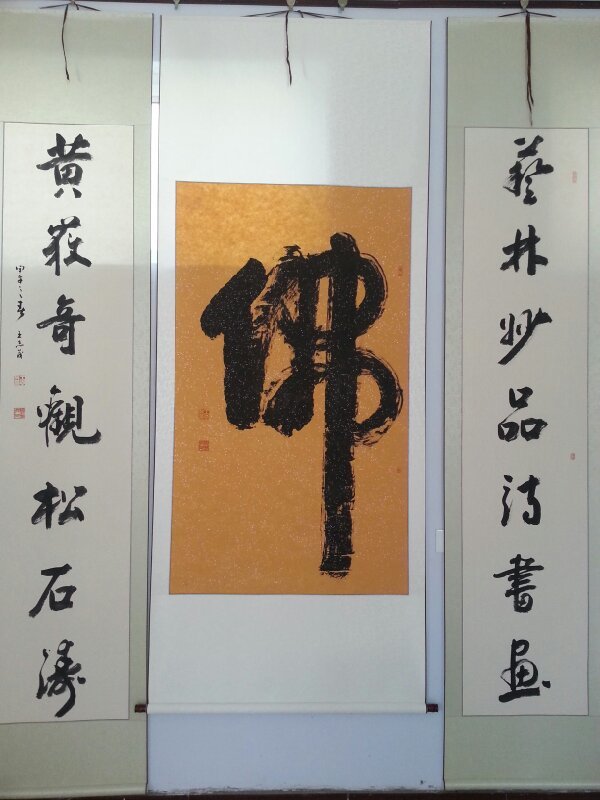 藝林妙品詩書畫
佛
黄嶽奇觀松石濤
甲午之春